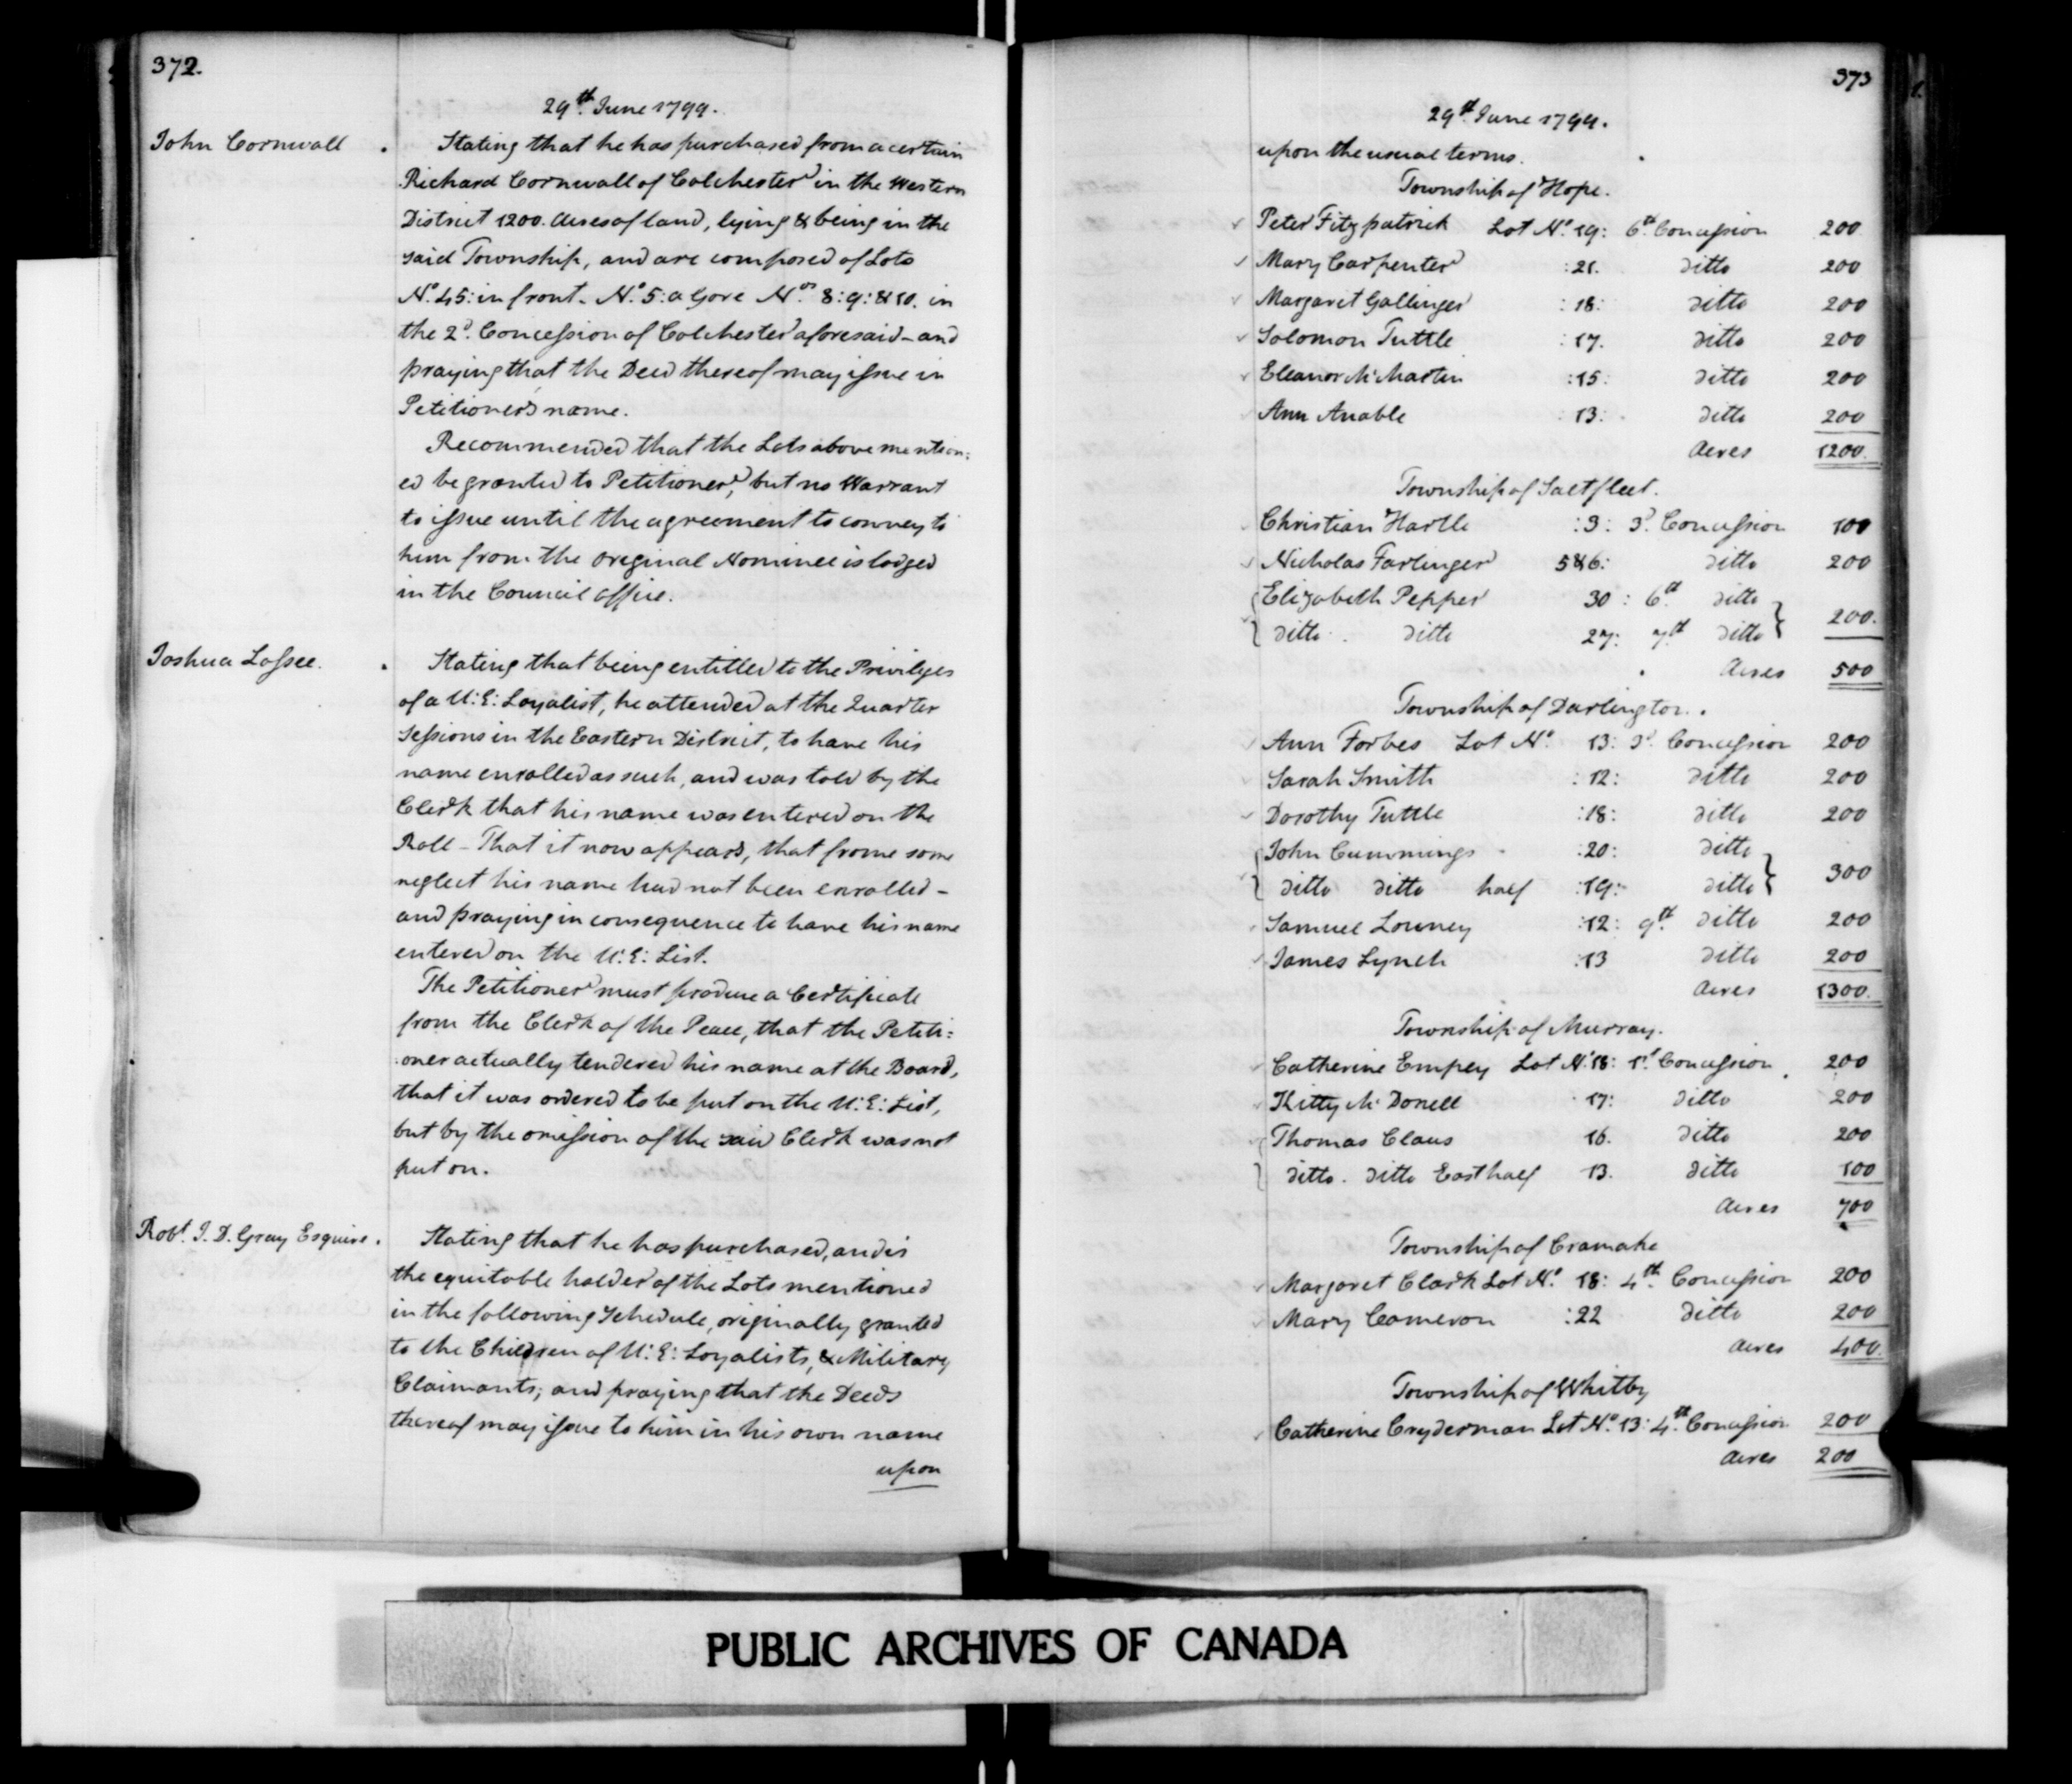 372.
29th June 1799.
John Cornwall . Stating that he has purchased from a certain
Richard Cornwall of Colchester in the Western
District 1200. Acres of land, lying & being in the
said Township, and are composed of Lots
No. 45: in front. No. 5: a Gore Nos. 8: 9: & 10. in
the 2d. Concession of Colchester aforesaid - and
praying that the Deed thereof may issue in
Petitioners name.
Recommended that the Lots above mention:
ed be granted to Petitioner, but no Warrant
to issue until the agreement to convey to
him from the Original Nominee is lodged
in the Council Office.
Joshua Lossee. . Stating that being entitled to the Privileges
of a U: E: Loyalist, he attended at the Quarter
Sessions in the Eastern District, to have his
name enrolled as such, and was told by the
Clerk that his name was entered on the
Roll - That it now appears, that frome some
neglect his name had not been enrolled -
and praying in consequence to have his name
entered on the U: E: List.
The Petitioner must produce a Certificate
from the Clerk of the Peace, that the Petiti:
:oner actually tendered his name at the Board,
that it was ordered to be put on the U: E: List,
but by the omission of the said Clerk was not
put on.
Robt. I. D. Gray Esquire . Stating that he has purchased, and is
the equitable holder of the Lots mentioned
in the following Schedule, originally granted
to the Children of U: E: Loyalists, & Military
Claimants; and praying that the Deeds
thereof may issue to him in his own name
upon
373
29th June 1799.
upon the usual terms.
Township of Hope.
Peter Fitzpatrick Lot No. 19: 6th Concession 200
Mary Carpenter :21. ditto 200
Margaret Gallinger :18: ditto 200
Solomon Tuttle :17. ditto 200
Eleanor McMartin :15: ditto 200
Ann Anable 13: ditto 200
Acres 1200.
Township of Saltfleet.
Christian Hartle :3: 3d. Concession 100
Nicholas Farlinger 5&6: ditto 200
Elizabeth Pepper 30: 6th ditto
ditto. ditto 27: 7th ditto 200.
Acres 500
Township of Darlington.
Ann Forbes Lot No. 13: 3d. Concession 200
Sarah Smith :12: ditto 200
Dorothy Tuttle :18: ditto 200
John Cummings :20: ditto
ditto ditto half :19: ditto 300
Samuel Louney :12: 9th ditto 200
James Lynch :13 ditto 200
Acres 1300.
Township of Murray.
Catherine Empey Lot No. 18: 1st Concession 200
Kitty McDonell 17: ditto 200
Thomas Claus 16. ditto 200
ditto. ditto East half 13. ditto 100
Acres 700
Township of Cramahe
Margaret Clark Lot No. 18: 4th Concession 200
Mary Cameron :22 ditto 200
Acres 400.
Township of Whitby
Catherine Cryderman Lot No. 13: 4th Concession 200
Acres 200
PUBLIC ARCHIVES OF CANADA